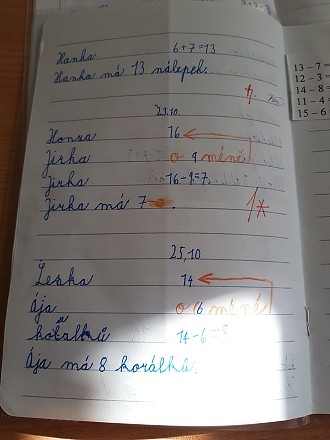 Hanka 6+7=13
Hanka má 13 nálepek.
23.10.
Honza 16
Jirka o 9 méně
Jirka 16-9=7
Jirka má 7 .
1*
25.10
Lenka 14
Ája o 6 méně
korálků 14-6=?
Ája má 8 korálků.
13 - 7 =
12 - 3 =
14 - 8 =
11 - 4 =
15 - 6